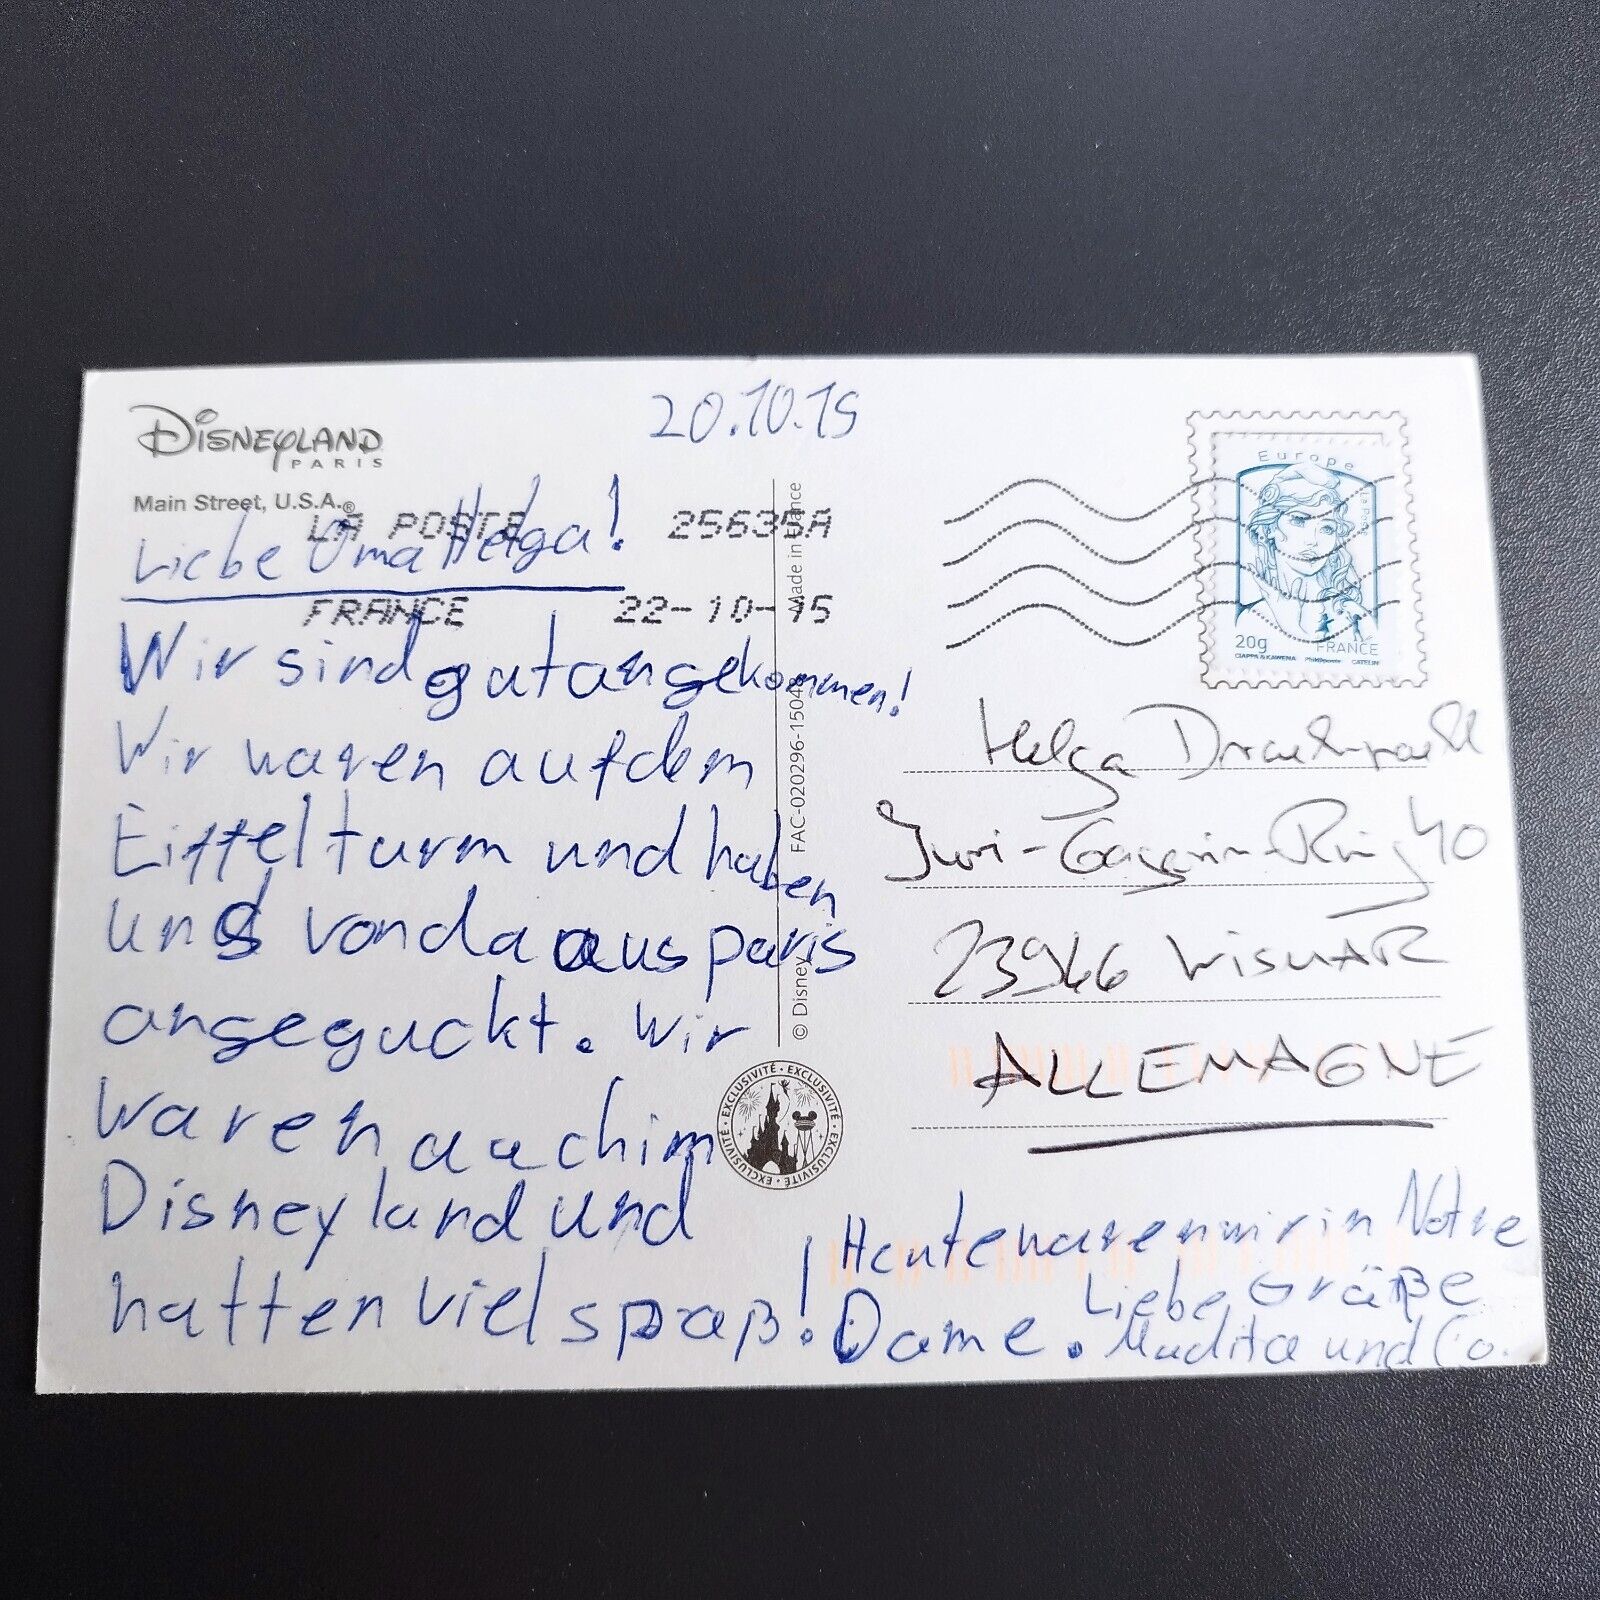 20.10.15
DISNEYLAND
PARIS
Main Street, U.S.A.®
LA POSTE 25635A
FRANCE 22-10-15
Liebe Oma Helga!
Wir sind gut angekommen!
Wir waren auf dem
Eiffelturm und haben
uns von da aus paris
angeguckt. Wir
waren auch im
Disneyland und
hatten viel spaß!
! Heute waren wir in Notre
Dame.
Liebe Grüße
Madita und Co.
Made in France
FAC-020296-15048
© Disney
EXCLUSIVITÉ · EXCLUSIVITÉ · EXCLUSIVITÉ · EXCLUSIVITÉ ·
Europe
La Poste
20g FRANCE
CIAPPA & KAWENA Phil@poste CATELIN
Helga
Juri-Gagarin-Ring 40
23966 WISMAR
ALLEMAGNE